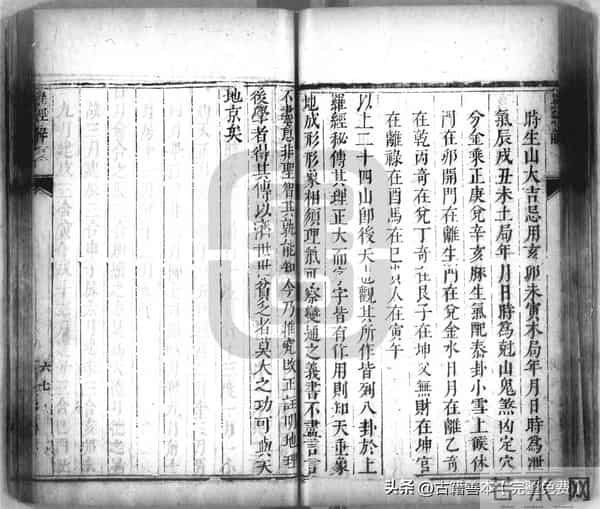 時生山大吉忌用亥卯未寅木局年月日時為泄
氣辰戌丑未土局年月日時為尅山鬼煞凶定穴
分金乘正庚兌辛亥脉生氣配泰卦小雪上候休
門在卯開門在離生門在兌金水日月在離乙奇
在乾丙奇在兌丁奇在艮子在坤父無財在坤官
在離祿在酉馬在巳貴人在寅午
以上二十四山即後天也觀其所作皆列八卦於上
羅經秘傳其理正大而字字皆有作用則知天垂象
地成形形象相須理氣可察變通之義書不盡言言
不盡意非聖智其孰能知今乃推究改正註明地理
後學者得其傳以濟世世貧乏者莫大之功可與天
地京矣
羅經解
六七
头条 @古籍善本十完整免费